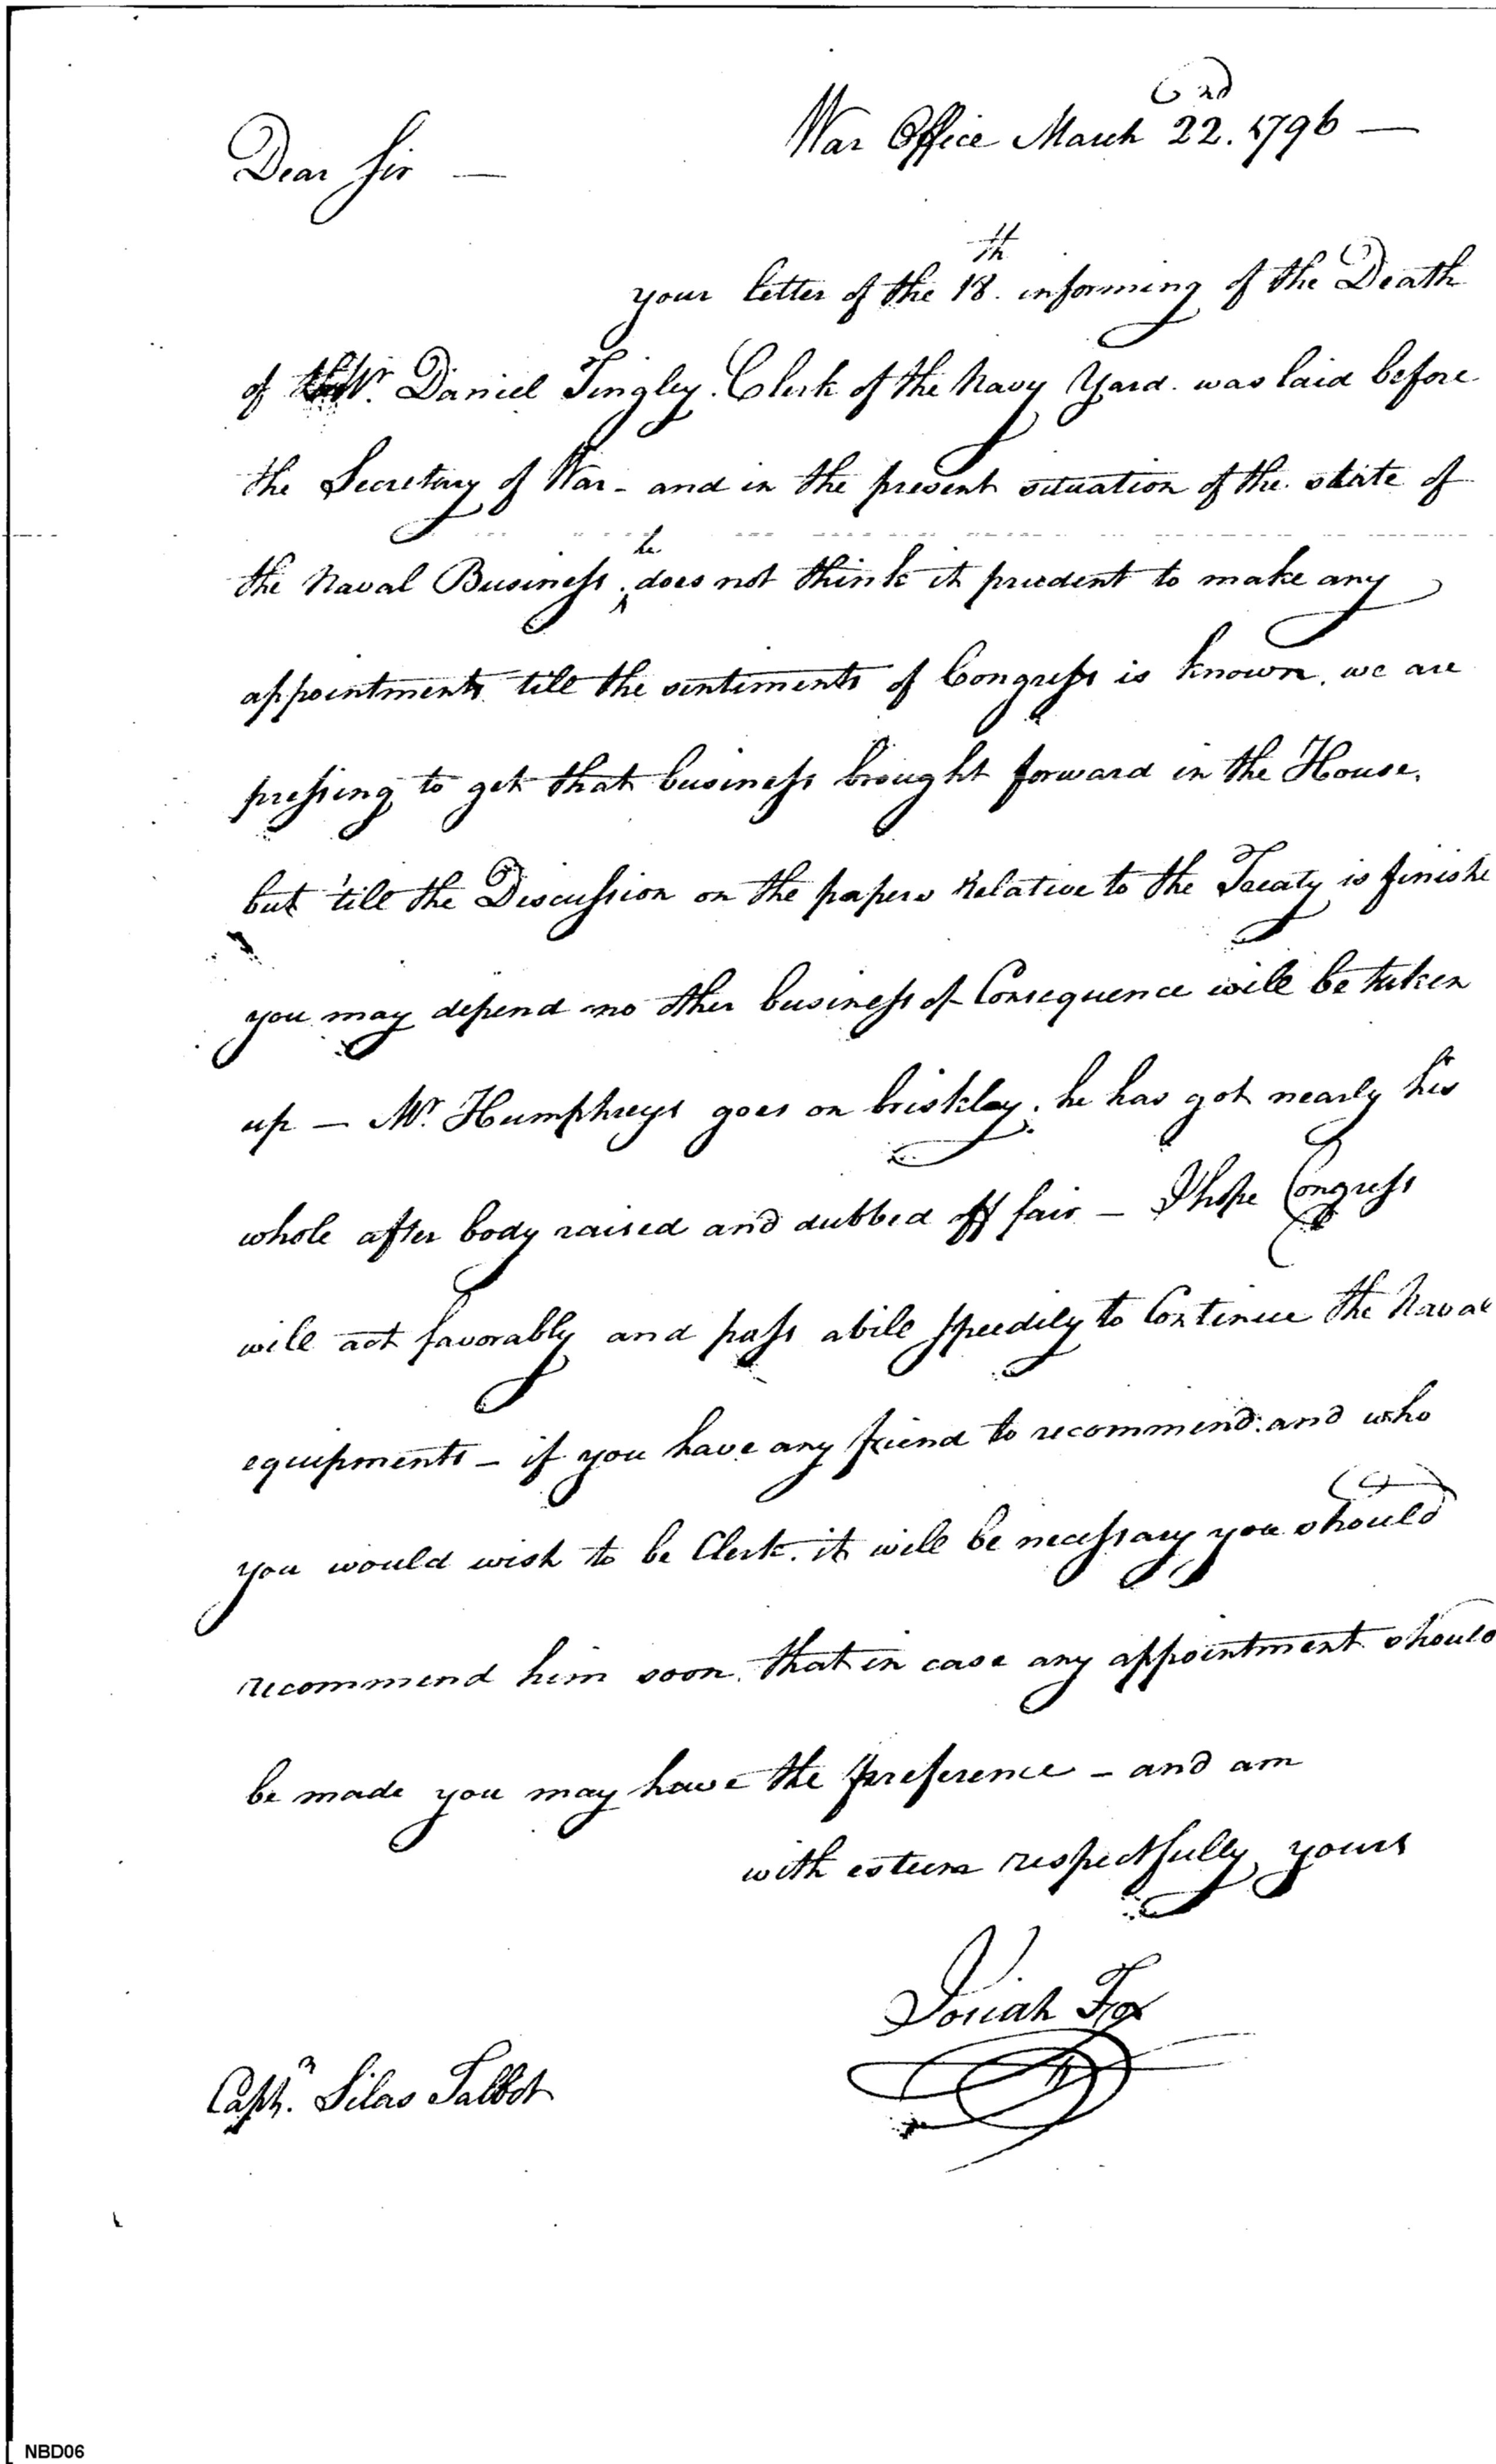 War Office March 22.nd 1796 —
Dear Sir —
your letter of the 18.th informing of the Death
of Mr. Daniel Tingley. Clerk of the Navy Yard. was laid before
the Secretary of War - and in the present situation of the state of
the Naval Business, he does not think it prudent to make any
appointments till the sentiments of Congress is known. we are
pressing to get that business brought forward in the House.
but 'till the Discussion on the papers Relative to the Treaty is finishe
you may depend no other business of Consequence will be taken
up — Mr. Humphreys goes on briskley. he has got nearly his
whole after body raised and dubbed off fair — I hope Congress
will act favorably and pass a bill speedily to Continue the Naval
equipments — if you have any friend to recommend. and who
you would wish to be Clerk. it will be necessary you should
recommend him soon. that in case any appointment should
be made you may have the preference — and am
with esteem respectfully yours
Josiah Fox
Captn. Silas Talbot
NBD06